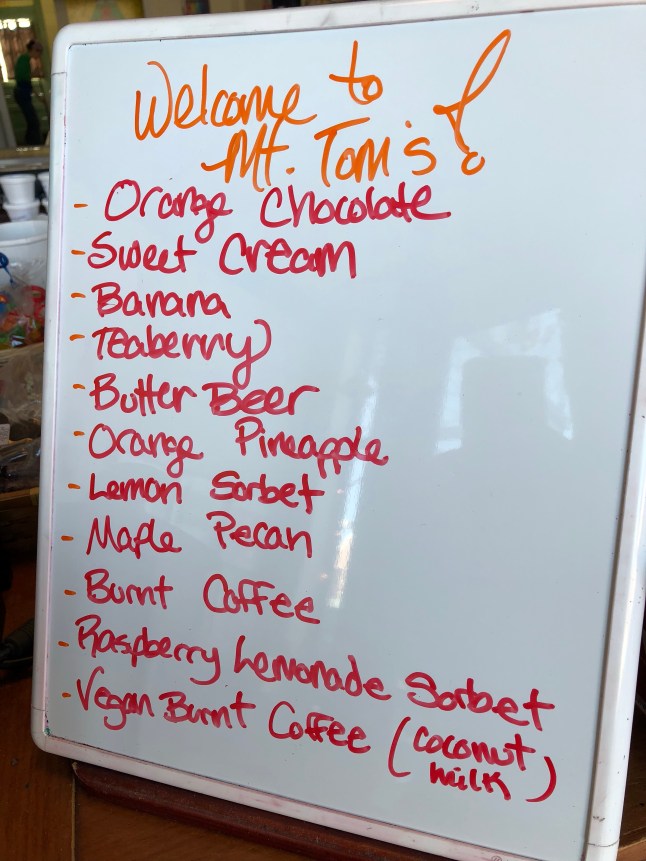 Welcome to
Mt. Tom's!
- Orange Chocolate
- Sweet Cream
- Banana
- Teaberry
- Butter Beer
- Orange Pineapple
- Lemon Sorbet
- Maple Pecan
- Burnt Coffee
- Raspberry Lemonade Sorbet
- Vegan Burnt Coffee (coconut
milk)